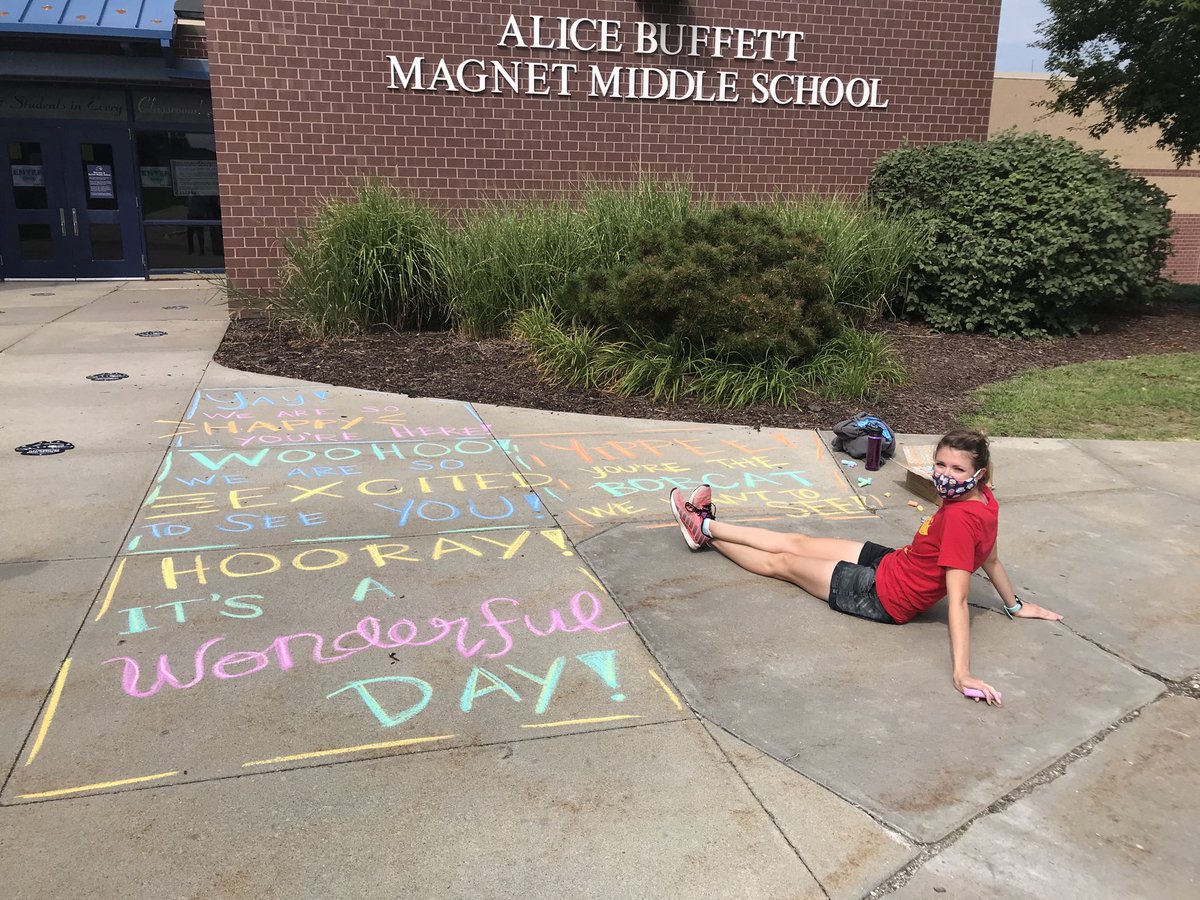 ALICE BUFFETT
MAGNET MIDDLE SCHOOL
Students in Every Classroom!
ENTER
ENTER
YAY!
WE ARE SO
HAPPY
YOU'RE HERE!
WOOHOO!
WE ARE SO
EXCITED
TO SEE YOU!
YIPPEE!
YOU'RE THE
BOBCAT
WE WANT TO
SEE!
HOORAY!
IT'S A
Wonderful
DAY!